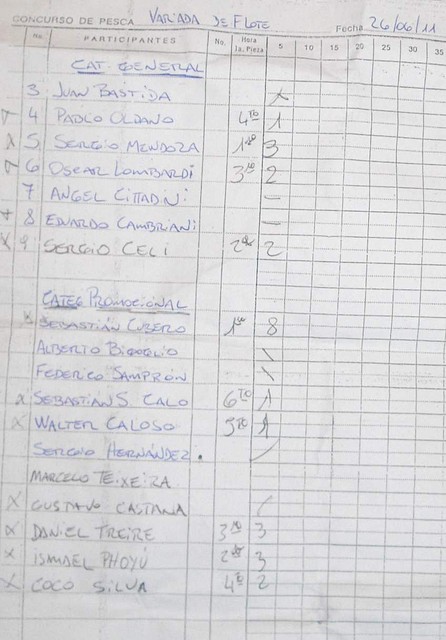 CONCURSO DE PESCA VARIADA DE FLOTE Fecha 26/06/11
No. PARTICIPANTES No. Hora 1a. Pieza 5 10 15 20 25 30 35
CAT. GENERAL
3 JUAN BASTIDA
4 PABLO OLDANO 4TO 1
X 5 SERGIO MENDOZA 1RO 3
6 OSCAR LOMBARDI 3RO 2
7 ANGEL CITTADINI —
8 EDUARDO CAMBRIANI —
X 9 SERGIO CELI 2DO 2
CATEG PROMOCIONAL
X SEBASTIÁN CUBERO 1RO 8
ALBERTO \
FEDERICO SAMPRÓN \
X SEBASTIAN S CALO 6TO 1
X WALTER CALOSO 5TO 1
SERGIO HERNANDEZ. /
MARCELO TEIXEIRA
X GUSTAVO CASTANA /
X DANIEL FREIRE 3RO 3
X ISMAEL PHOYÚ 2DO 3
X COCO SILVA 4TO 2